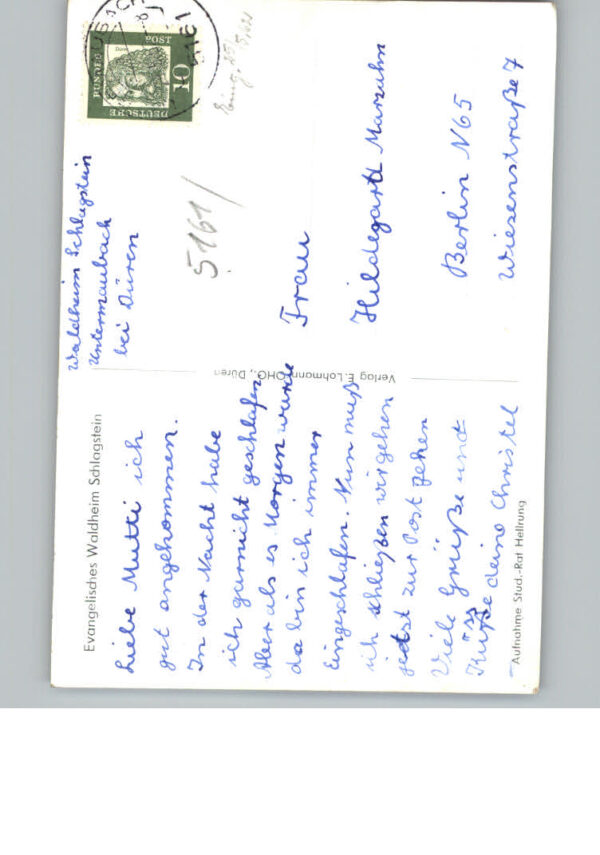 Evangelisches Waldheim Schlagstein
Liebe Mutti ich
gut angekommen.
In der Nacht habe
ich garnicht geschlafen
Aber als es Morgen wurde
da bin ich immer
Eingeschlafen. Nun muß
ich schließen wir gehen
jetzt zur Post gehen
Viele Grüße und
Küße deine Christel
Aufnahme Stud.-Rat Hellrung
Verlag E. Lohmann OHG., Düren
Waldheim Schlagstein
Untermaubach
bei Düren
DEUTSCHE
BUNDES
POST
Dürer
10
5161
5161/
Frau
Hildegardt Marzuhn
Berlin N65
Wiesenstraße 7